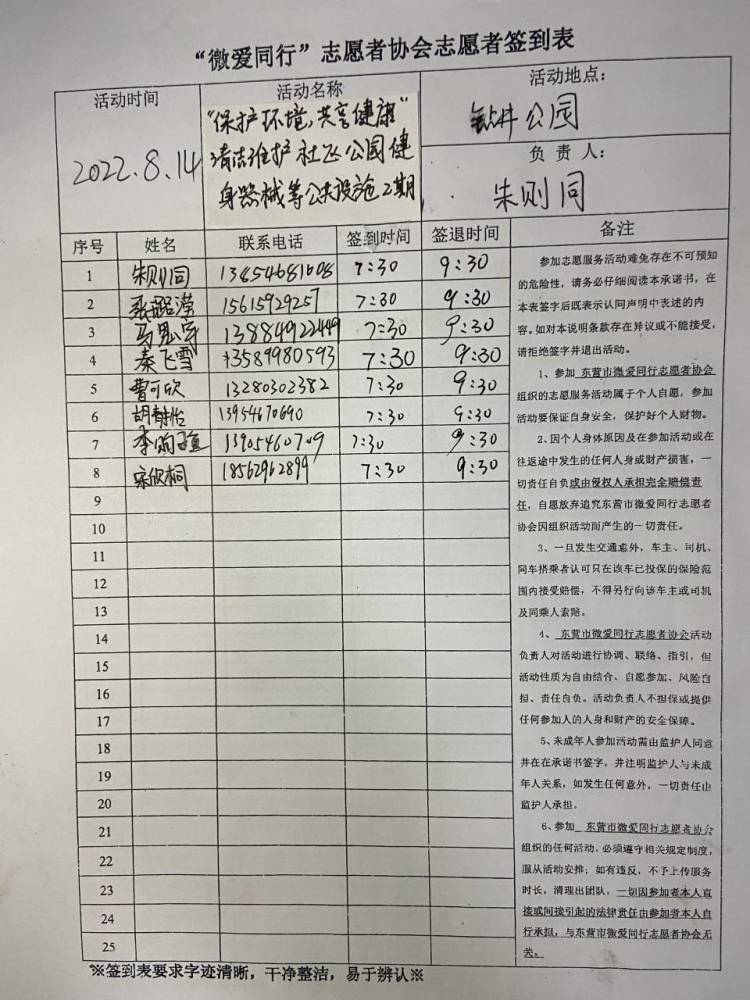 “微爱同行”志愿者协会志愿者签到表
活动时间
2022.8.14
活动名称
“保护环境,共享健康”
清洁维护社区公园健
身器械等公共设施2期
活动地点：
钻井公园
负责人：
朱则同
序号 姓名 联系电话 签到时间 签退时间 备注
1 朱则同 13854681608 7:30 9:30
2 15615929257 7:30 9:30
3 13884922449 7:30 9:30
4 秦飞雪 13589980593 7:30 9:30
5 曹可欣 13280302382 7:30 9:30
6 胡静怡 13954670690 7:30 9:30
7 13905460709 7:30 9:30
8 宋欣桐 18562962899 7:30 9:30
9
10
11
12
13
14
15
16
17
18
19
20
21
22
23
24
25
参加志愿服务活动难免存在不可预知
的危险性，请务必仔细阅读本承诺书，在
本表签字后既表示认同声明中表述的内
容。如对本说明条款存在异议或不能接受，
请拒绝签字并退出活动。
1、参加 东营市微爱同行志愿者协会
组织的志愿服务活动属于个人自愿，参加
活动要保证自身安全，保护好个人财物。
2、因个人身体原因及在参加活动或在
往返途中发生的任何人身或财产损害，一
切责任自负或由侵权人承担完全赔偿责
任，自愿放弃追究东营市微爱同行志愿者
协会因组织活动而产生的一切责任。
3、一旦发生交通意外，车主、司机、
同车搭乘者认可只在该车已投保的保险范
围内接受赔偿，不得另行向该车主或司机
及同乘人索赔。
4、 东营市微爱同行志愿者协会活动
负责人对活动进行协调、联络、指引，但
活动性质为自由结合、自愿参加、风险自
担、责任自负。活动负责人不担保或提供
任何参加人的人身和财产的安全保障。
5、未成年人参加活动需由监护人同意
并在在承诺书签字，并注明监护人与未成
年人关系，如发生任何意外，一切责任由
监护人承担。
6、参加 东营市微爱同行志愿者协会
组织的任何活动，必须遵守相关规定制度，
服从活动安排；如有违反，不予上传服务
时长，清理出团队，一切因参加者本人直
接或间接引起的法律责任由参加者本人自
行承担，与东营市微爱同行志愿者协会无
关。
※签到表要求字迹清晰，干净整洁，易于辨认※